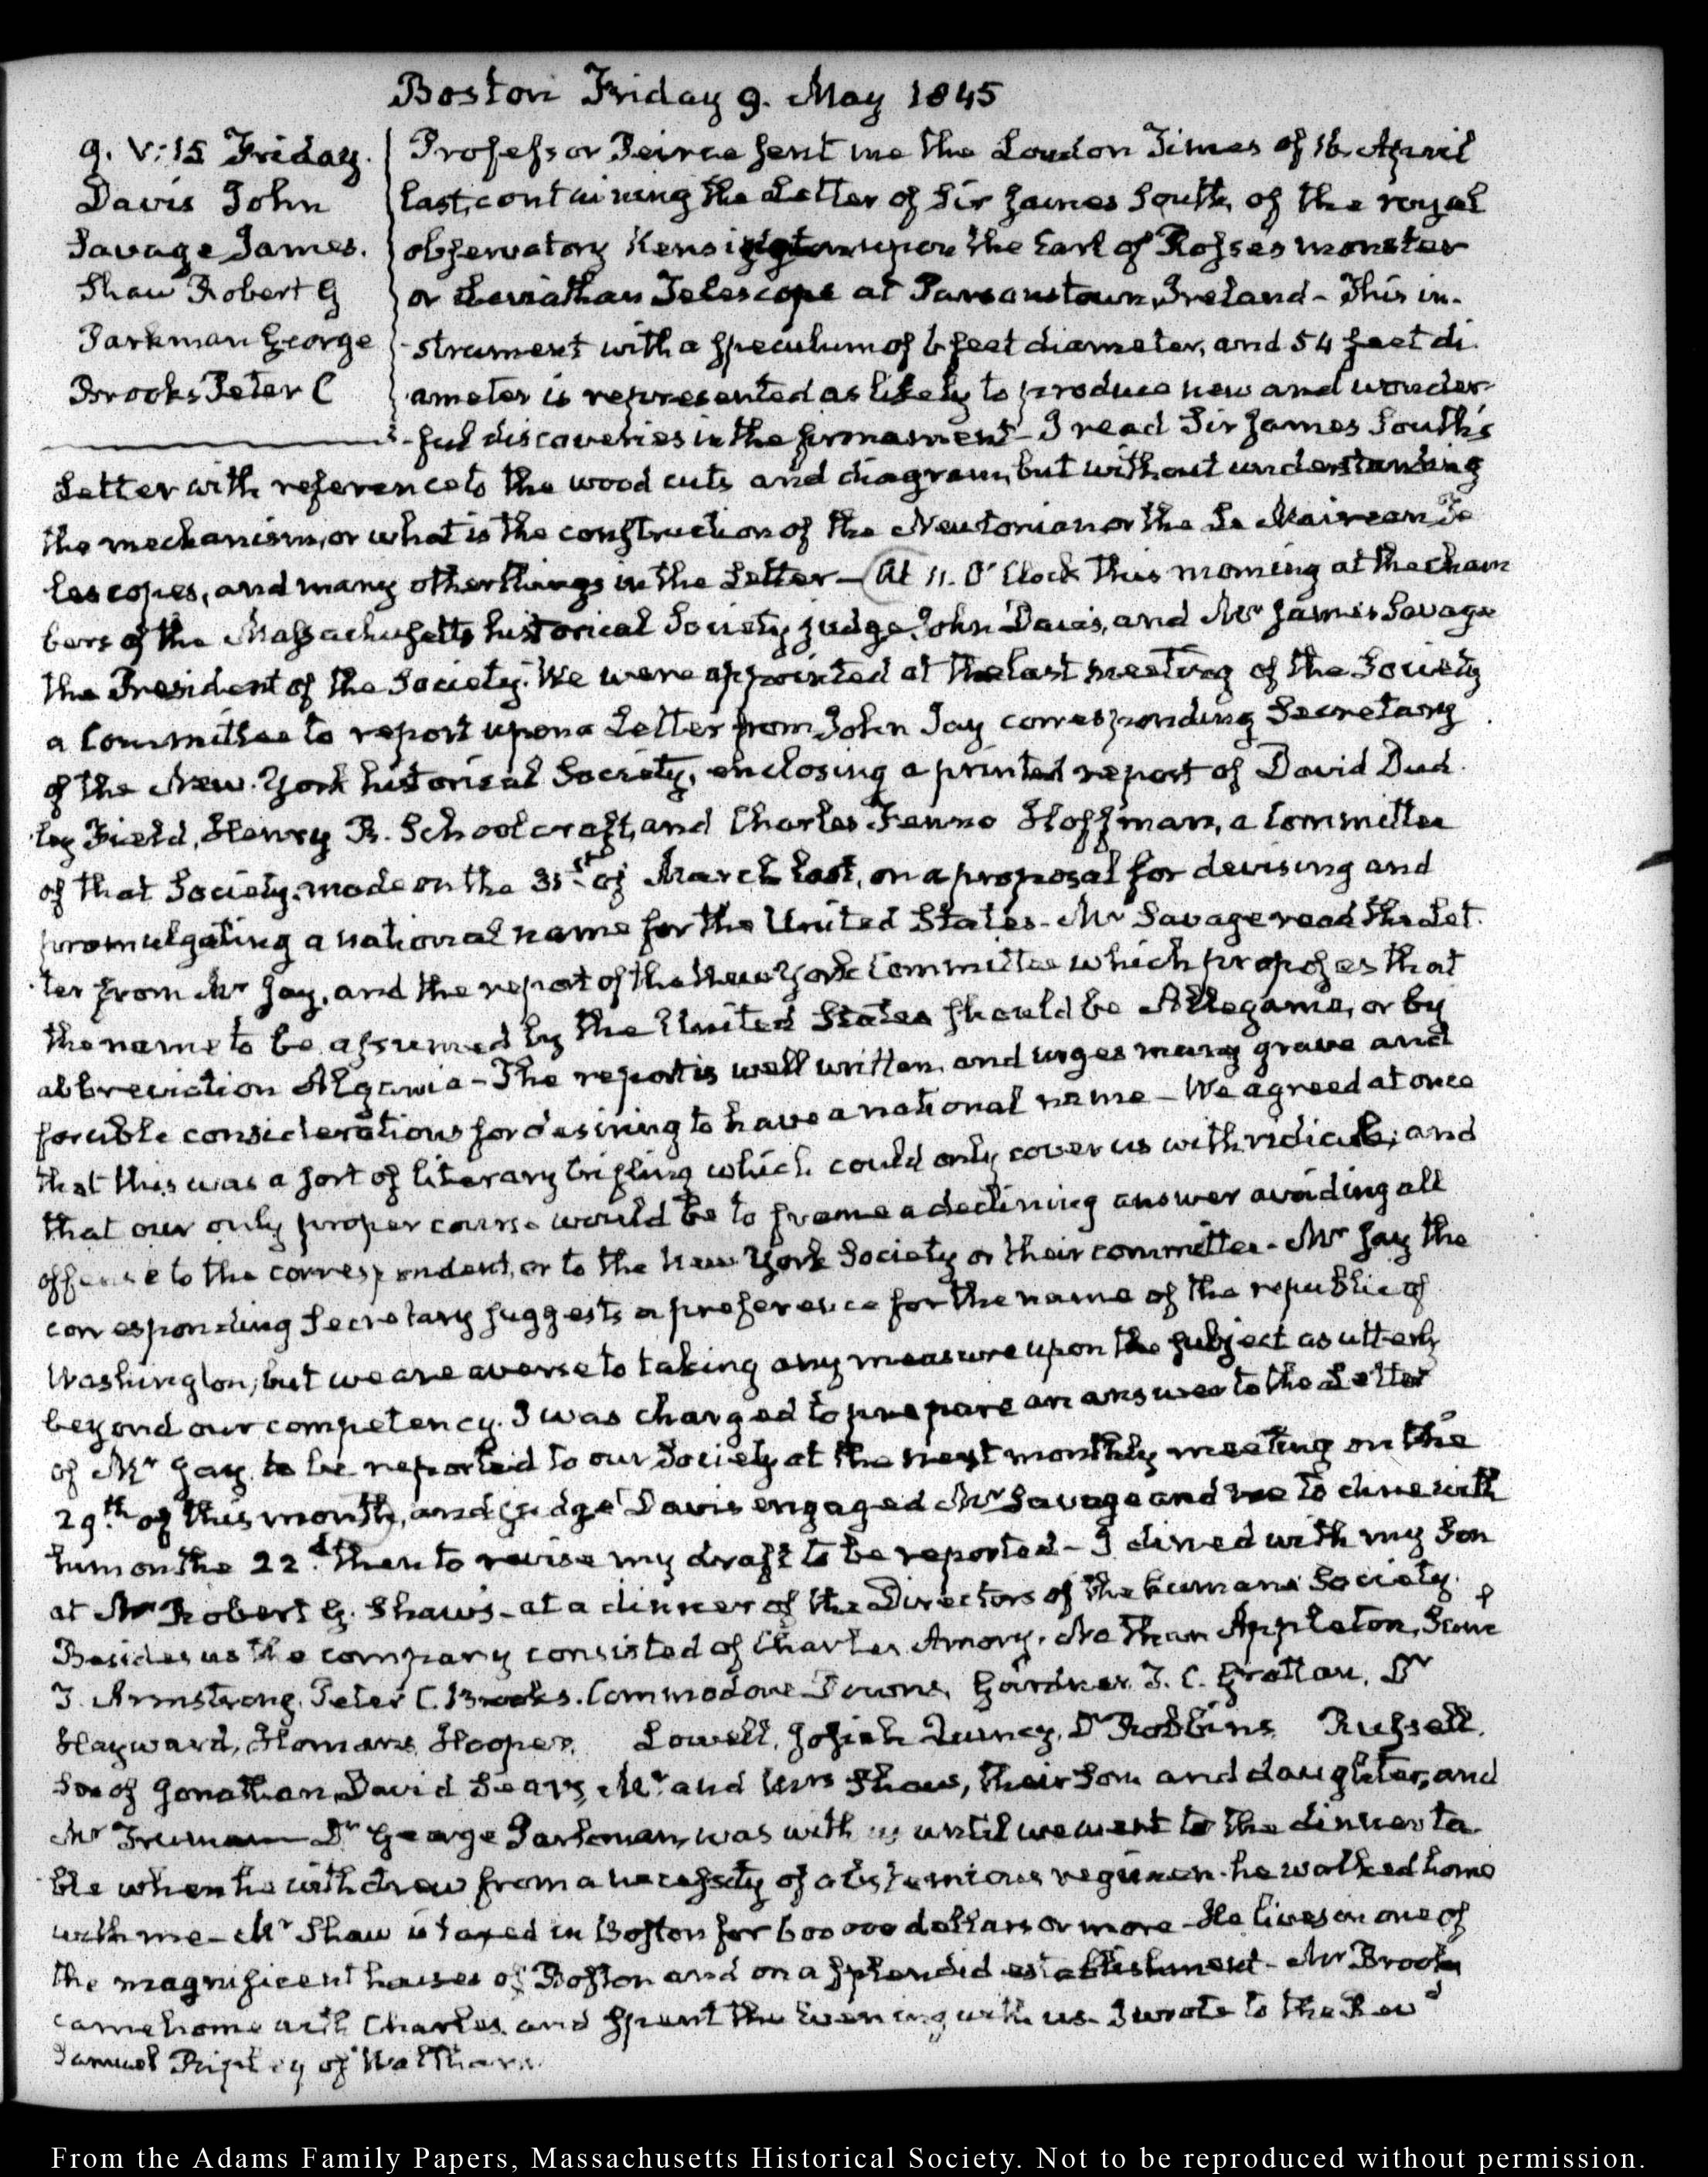 Boston Friday 9. May 1845
9. V:15 Friday.
Davis John
Savage James.
Shaw Robert G
Parkman George
Brooks Peter C
Professor Peirce sent me the London Times of 16. April
last, containing the Letter of Sir James South, of the royal
observatory Kensington upon the Earl of Rosses monster
or Leviathan Telescope at Parsonstown, Ireland - This in-
-strument with a speculum of 6 feet diameter, and 54 feet di
-ameter is represented as likely to produce new and wonder-
-ful discoveries in the firmament - I read Sir James South's
Letter with reference to the wood cuts and diagram, but without understanding
the mechanism, or what is the construction of the Newtonian or the Le Mairean Te
lescopes, and many other things in the Letter - At 11. O'Clock this morning at the cham
bers of the Massachusetts historical Society judge John Davis, and Mr James Savage
the President of the Society. We were appointed at the last meeting of the Society
a Committee to report upon a Letter from John Jay corresponding Secretary
of the New-York historical Society, enclosing a printed report of David Dud.
ley Field, Henry R. Schoolcraft, and Charles Fenno Hoffman, a Committee
of that Society, made on the 31st of March last, on a proposal for devising and
promulgating a national name for the United States - Mr Savage read the Let.
ter from Mr Jay, and the report of the New York Committee which proposes that
the name to be assumed by the United States should be Allegania, or by
abbreviation Algania - The report is well written, and urges many grave and
forcible considerations for desiring to have a national name - We agreed at once
that this was a sort of literary trifling which could only cover us with ridicule; and
that our only proper course would be to frame a declining answer avoiding all
offense to the correspondent, or to the New York Society or their committee - Mr Jay the
corresponding Secretary suggests a preference for the name of the republic of
Washington; but we are averse to taking any measure upon the subject as utterly
beyond our competency. I was charged to prepare an answer to the Letter
of Mr Jay to be reported to our Society at the next monthly meeting on the
29th of this month, and judge Davis engaged Mr Savage and me to dine with
him on the 22d. then to revise my draft to be reported - I dined with my Son
at Mr Robert G. Shaw's - at a dinner of the Directors of the humane Society.
Besides us the company consisted of Charles Amory, Nathan Appleton,
T. Armstrong, Peter C. Brooks. Commodore Downs, Gardner, T. C. Grattan, Dr
Hayward, Homans, Hooper, Lowell, Josiah Quincy, Dr Robbins Russell,
Son of Jonathan, David Sears, Mr. and Mrs Shaw, their Son and daughter, and
Mr Truman Dr George Parkman, was with us until we went to the dinner ta
ble when he withdrew from a necessity of abstemious regimen - he walked home
with me - Mr Shaw is taxed in Boston for 600 000 dollars or more - He lives in one of
the magnificent houses of Boston and on a splendid establishment - Mr Brooks
came home with Charles, and spent the Evening with us - I wrote to the Revd
Samuel Ripley of Waltham.
From the Adams Family Papers, Massachusetts Historical Society. Not to be reproduced without permission.